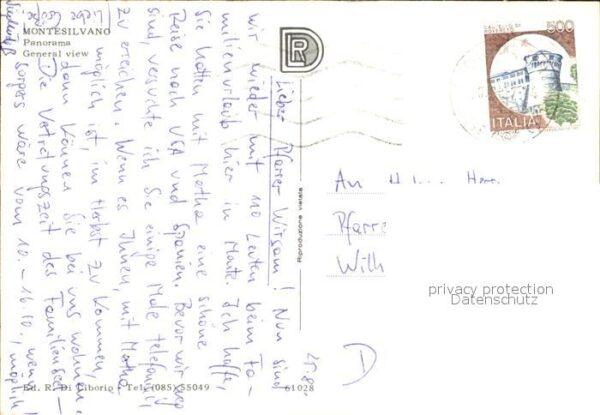 MONTESILVANO
Panorama
General view
500
ITALIA
Lieber Pfarrer Wirsam! Nun sind
wir wieder mit 110 Leuten beim Fa-
milienurlaub hier in Monte. Ich hoffe,
Sie hatten mit Martha eine schöne
Reise nach USA und Spanien. Bevor wir weg
sind, versuchte ich Sie einige Male telefonisch
zu erreichen. Wenn es Ihnen, mit Martha
möglich ist, im Herbst zu kommen,
dann können Sie bei uns wohnen.
Die Vertretungszeit des Familienseel-
sorgers wäre vom 10. - 16.10., wenn
möglich!
An Herrn
Pfarre
Wilh
D
Riproduzione vietata
Ed. R. Di Liborio - Tel. (085) 55049
61028
privacy protection
Datenschutz